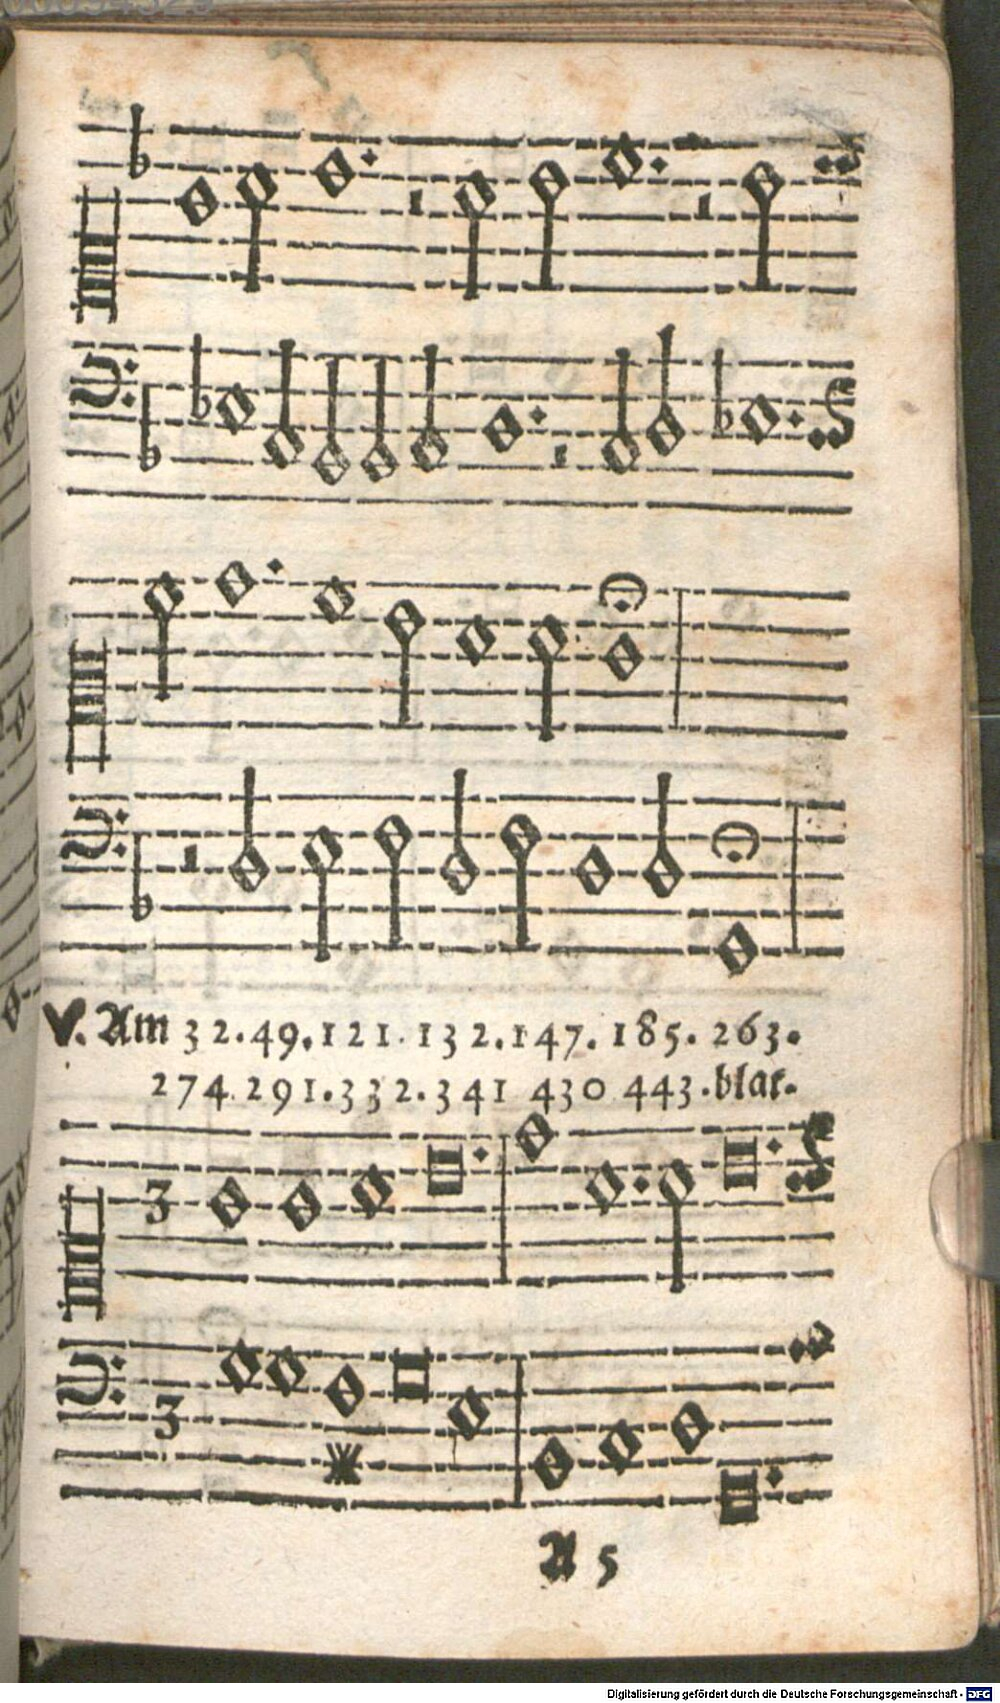 3
V. Am 32.49.121.132.147.185.263.
274.291.332.341 430 443.blat.
3
A 5
Digitalisierung gefördert durch die Deutsche Forschungsgemeinschaft - DFG